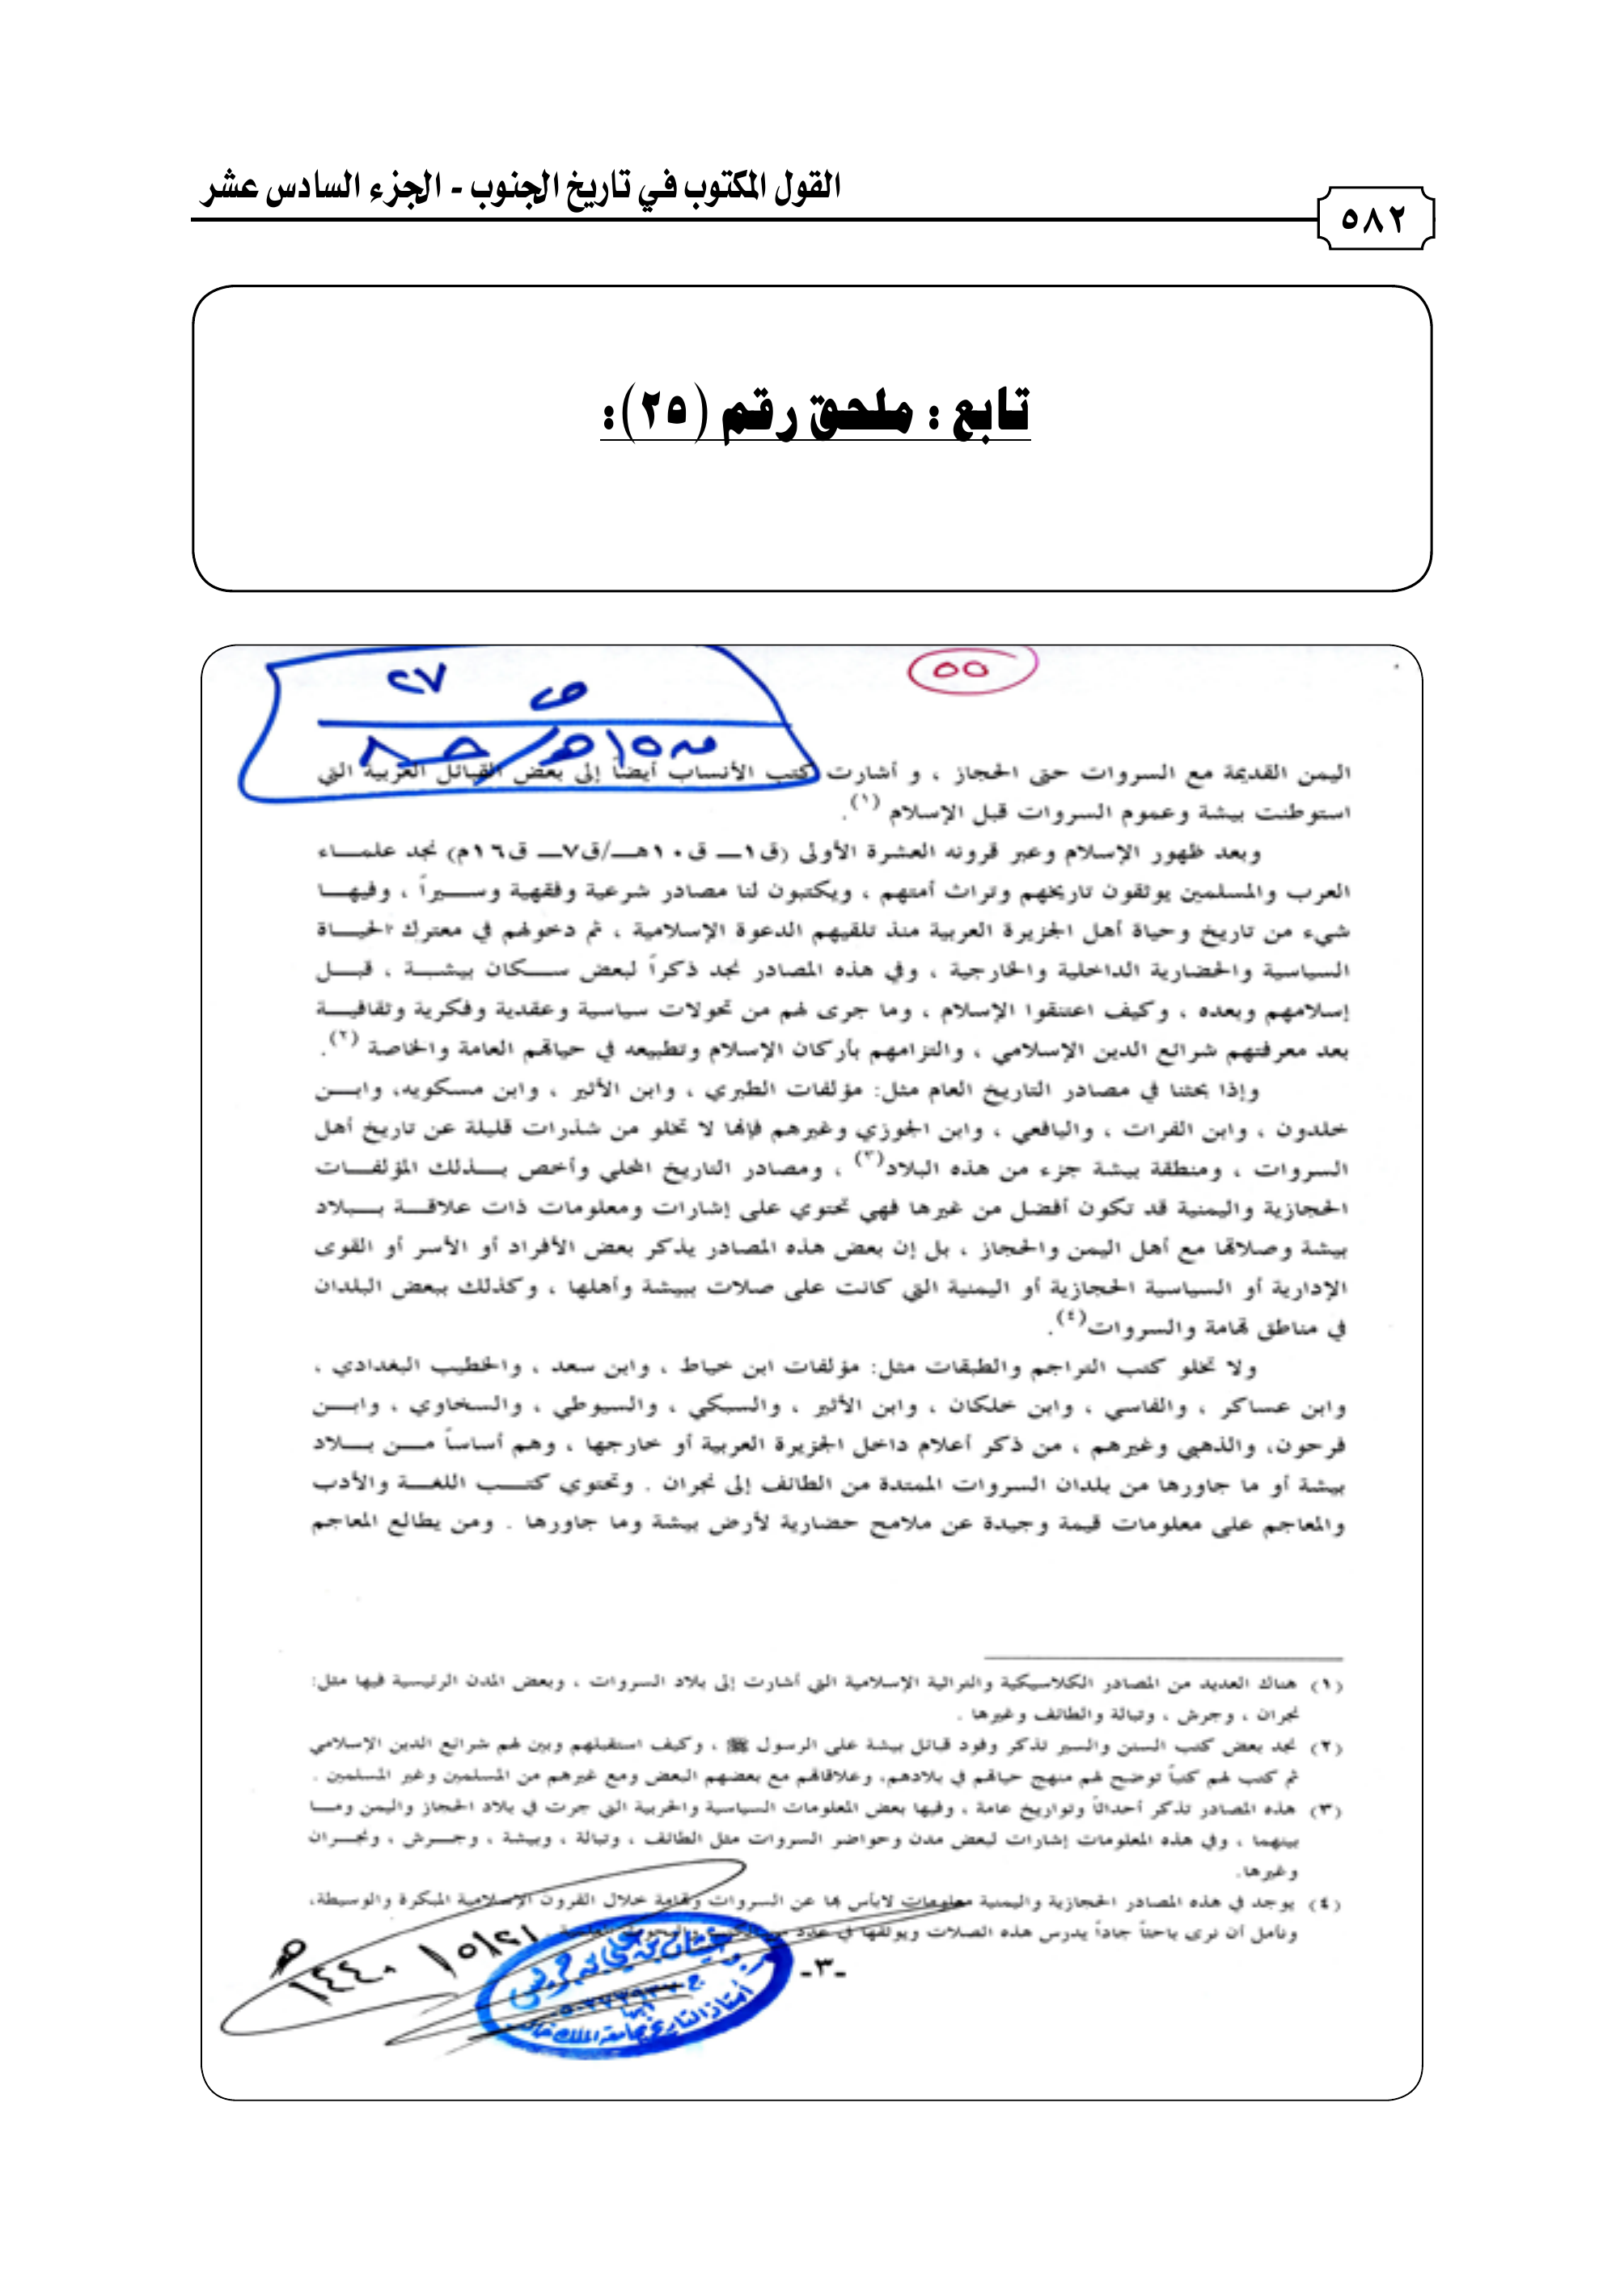 القول المكتوب في تاريخ الجنوب - الجزء السادس عشر
٥٨٢
تابع : ملحق رقم (٢٥):
٥٥
٢٧
ص
اليمن القديمة مع السروات حتى الحجاز ، و أشارت كتب الأنساب أيضاً إلى بعض القبائل العربية التي
استوطنت بيشة وعموم السروات قبل الإسلام (١).
وبعد ظهور الإسلام وعبر قرونه العشرة الأولى (ق١ــ ق١٠هــ/ق٧ــ ق١٦م) نجد علمــاء
العرب والمسلمين يوثقون تاريخهم وتراث أمتهم ، ويكتبون لنا مصادر شرعية وفقهية وســيراً ، وفيهــا
شيء من تاريخ وحياة أهل الجزيرة العربية منذ تلقيهم الدعوة الإسلامية ، ثم دخولهم في معترك الحيــاة
السياسية والحضارية الداخلية والخارجية ، وفي هذه المصادر نجد ذكراً لبعض ســكان بيشــة ، قبــل
إسلامهم وبعده ، وكيف اعتنقوا الإسلام ، وما جرى لهم من تحولات سياسية وعقدية وفكرية وثقافيــة
بعد معرفتهم شرائع الدين الإسلامي ، والتزامهم بأركان الإسلام وتطبيعه في حياتهم العامة والخاصة (٢).
وإذا بحثنا في مصادر التاريخ العام مثل: مؤلفات الطبري ، وابن الأثير ، وابن مسكويه، وابــن
خلدون ، وابن الفرات ، واليافعي ، وابن الجوزي وغيرهم فإنها لا تخلو من شذرات قليلة عن تاريخ أهل
السروات ، ومنطقة بيشة جزء من هذه البلاد(٣) ، ومصادر التاريخ المحلي وأخص بــذلك المؤلفــات
الحجازية واليمنية قد تكون أفضل من غيرها فهي تحتوي على إشارات ومعلومات ذات علاقــة بــبلاد
بيشة وصلاتها مع أهل اليمن والحجاز ، بل إن بعض هذه المصادر يذكر بعض الأفراد أو الأسر أو القوى
الإدارية أو السياسية الحجازية أو اليمنية التي كانت على صلات ببيشة وأهلها ، وكذلك ببعض البلدان
في مناطق تهامة والسروات(٤).
ولا تخلو كتب التراجم والطبقات مثل: مؤلفات ابن خياط ، وابن سعد ، والخطيب البغدادي ،
وابن عساكر ، والفاسي ، وابن خلكان ، وابن الأثير ، والسبكي ، والسيوطي ، والسخاوي ، وابــن
فرحون، والذهبي وغيرهم ، من ذكر أعلام داخل الجزيرة العربية أو خارجها ، وهم أساساً مــن بــلاد
بيشة أو ما جاورها من بلدان السروات الممتدة من الطائف إلى نجران . وتحتوي كتــب اللغــة والأدب
والمعاجم على معلومات قيمة وجيدة عن ملامح حضارية لأرض بيشة وما جاورها . ومن يطالع المعاجم
(١) هناك العديد من المصادر الكلاسيكية والتراثية الإسلامية التي أشارت إلى بلاد السروات ، وبعض المدن الرئيسية فيها مثل:
نجران ، وجرش ، وتبالة والطائف وغيرها .
(٢) نجد بعض كتب السنن والسير تذكر وفود قبائل بيشة على الرسول ﷺ ، وكيف استقبلهم وبين لهم شرائع الدين الإسلامي
ثم كتب لهم كتباً توضح لهم منهج حياتهم في بلادهم، وعلاقاتهم مع بعضهم البعض ومع غيرهم من المسلمين وغير المسلمين .
(٣) هذه المصادر تذكر أحداثاً وتواريخ عامة ، وفيها بعض المعلومات السياسية والحربية التي جرت في بلاد الحجاز واليمن ومــا
بينهما ، وفي هذه المعلومات إشارات لبعض مدن وحواضر السروات مثل الطائف ، وتبالة ، وبيشة ، وجــرش ، ونجــران
وغيرها.
(٤) يوجد في هذه المصادر الحجازية واليمنية معلومات لابأس بها عن السروات وتهامة خلال القرون الإسلامية المبكرة والوسيطة،
ونأمل أن نرى باحثاً جاداً يدرس هذه الصلات ويوثقها في عدد من
-٣-
١٤٤٠/٥/٢١ هـ
أستاذ التاريخ بجامعة الملك خالد